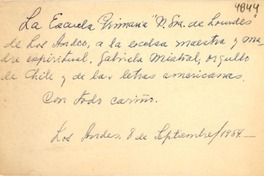 4844
La Escuela Primaria "N. Sra. de Lourdes"
de Los Andes, a la excelsa maestra y ma-
dre espiritual, Gabriela Mistral, orgullo
de Chile y de las letras americanas.
Con todo cariño.
Los Andes, 8 de Septiembre/1954.-